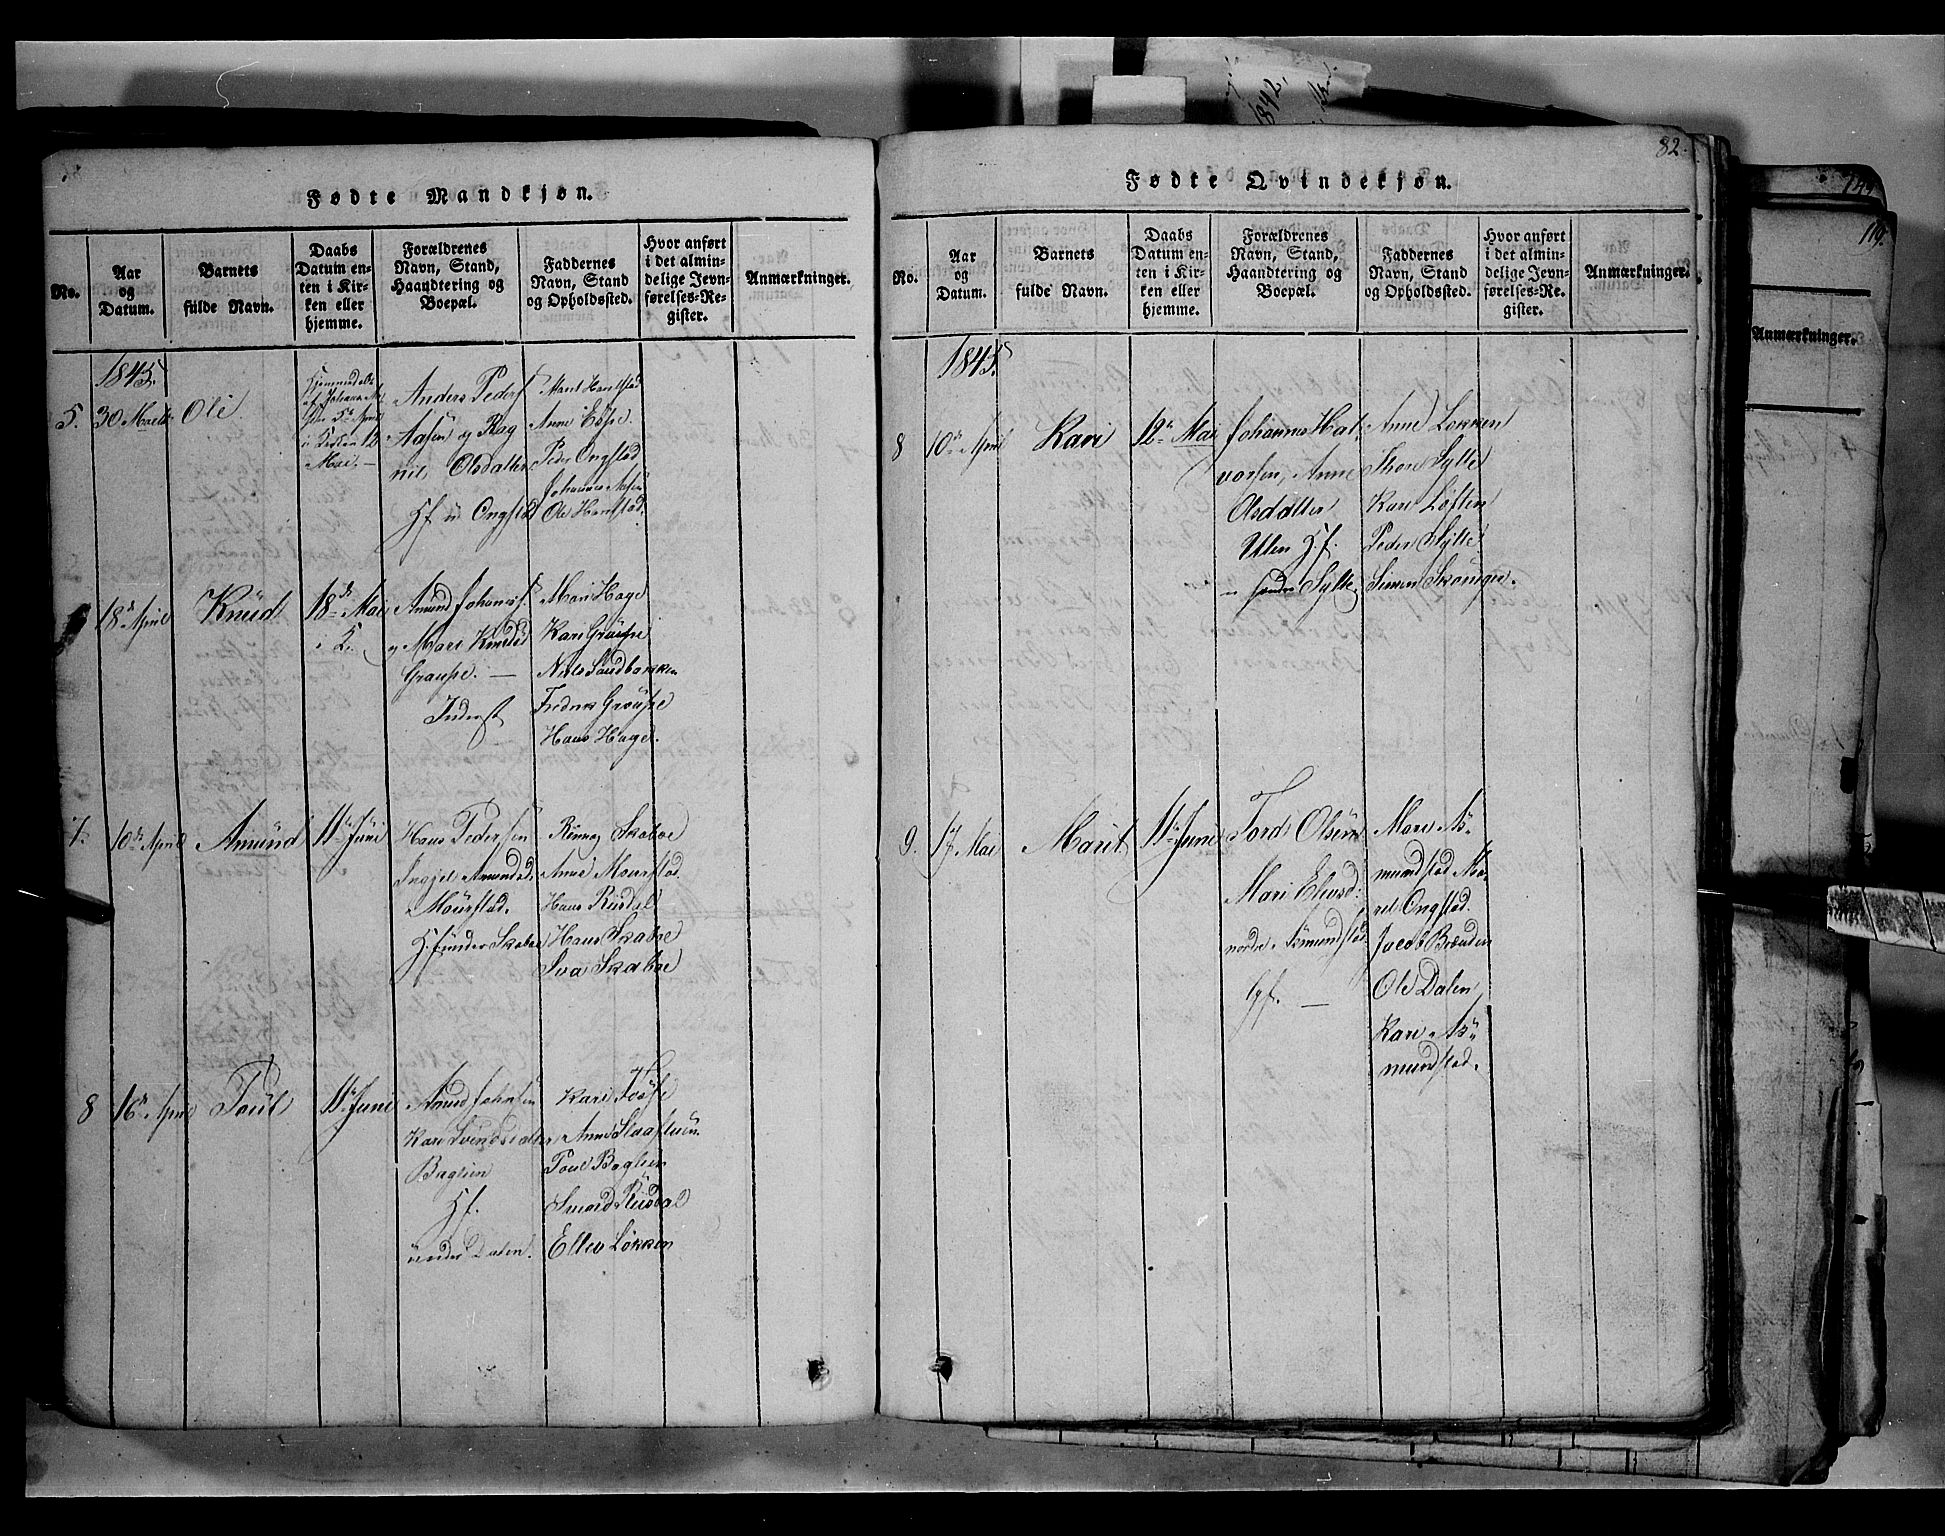 Fødte Mandkjøn.
No.
Aar
og
Datum.
Barnets
fulde Navn.
Daabs
Datum en-
ten i Kir-
ken eller
hjemme.
Forældrenes
Navn, Stand,
Haandtering og
Boepæl.
Faddernes
Navn, Stand
og Opholdssted.
Hvor anført
i det almin-
delige Jevn-
førelses-Re-
gister.
Anmærkninger.
1845.
5.
30 Marts
Ole
i Kirken 12
Mai.
Anders Peders
Aasen og Rag
nil Olsdatter
Hf u Ongstad
Marit Hanstad
Anne
Peder Ongstad
Johannes Aasen
Ole Hanstad.
18de April
Knud
18de Mai
i K.
Amund Johanness
og Mari Knudsd
Graupe. —
Inderst
Mari Hage
Kari Graupe
Niels Sandbakken
Fredrik Graupe
Hans Hage.
7.
10de April
Amund
11te Juni
Hans Pedersen
Ingjel Amundsd.
Mourstad.
Hf under Skaboe
Rønnog Skaboe
Anne Mourstad
Hans Rusdal
Hans Skaboe
Iva Skaboe
8
16de April
Poul
11te Juni
Amund Johnsen
Kari Svendsdatter
Baglien
Hf.
under Dalen.
Kari
Anne
Poul Baglien
Rusdal
Ellev Løkken
82.
Fødte Qvindekjøn.
No.
Aar
og
Datum.
Barnets
fulde Navn.
Daabs
Datum en-
ten i Kir-
ken eller
hjemme.
Forældrenes
Navn, Stand,
Haandtering og
Boepæl.
Faddernes
Navn, Stand
og Opholdssted.
Hvor anført
i det almin-
delige Jevn-
førelses-Re-
gister.
Anmærkninger.
1845.
8
10de April
Kari
12te Mai
Johannes Hal-
vorsen, Anne
Olsdatter
Ulen Hf.
u søndre Sylte
Anne Løkken
Thore Sylte
Kari Loften
Peder Sylte
Simen
9.
17 Mai
Marit
11te Juni
Tord Olsen
Mari Elevsd:
nordre Asmundstad
Gf. —
Mari As-
mundstad Ma-
rit Ongstad.
Jacob Brænden
Ole Dalen
Kari As-
mundstad.
1842.
119.
Anmærkninger.